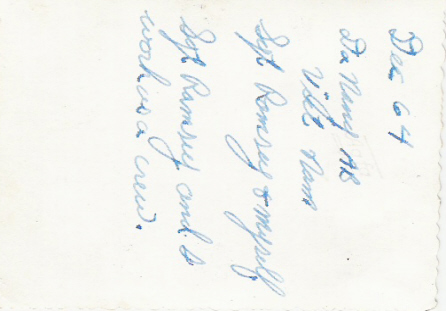 Dec 64
Da Nang AB
Viet Nam
Sgt Ramsey & myself
Sgt Ramsey and I
work as a crew.